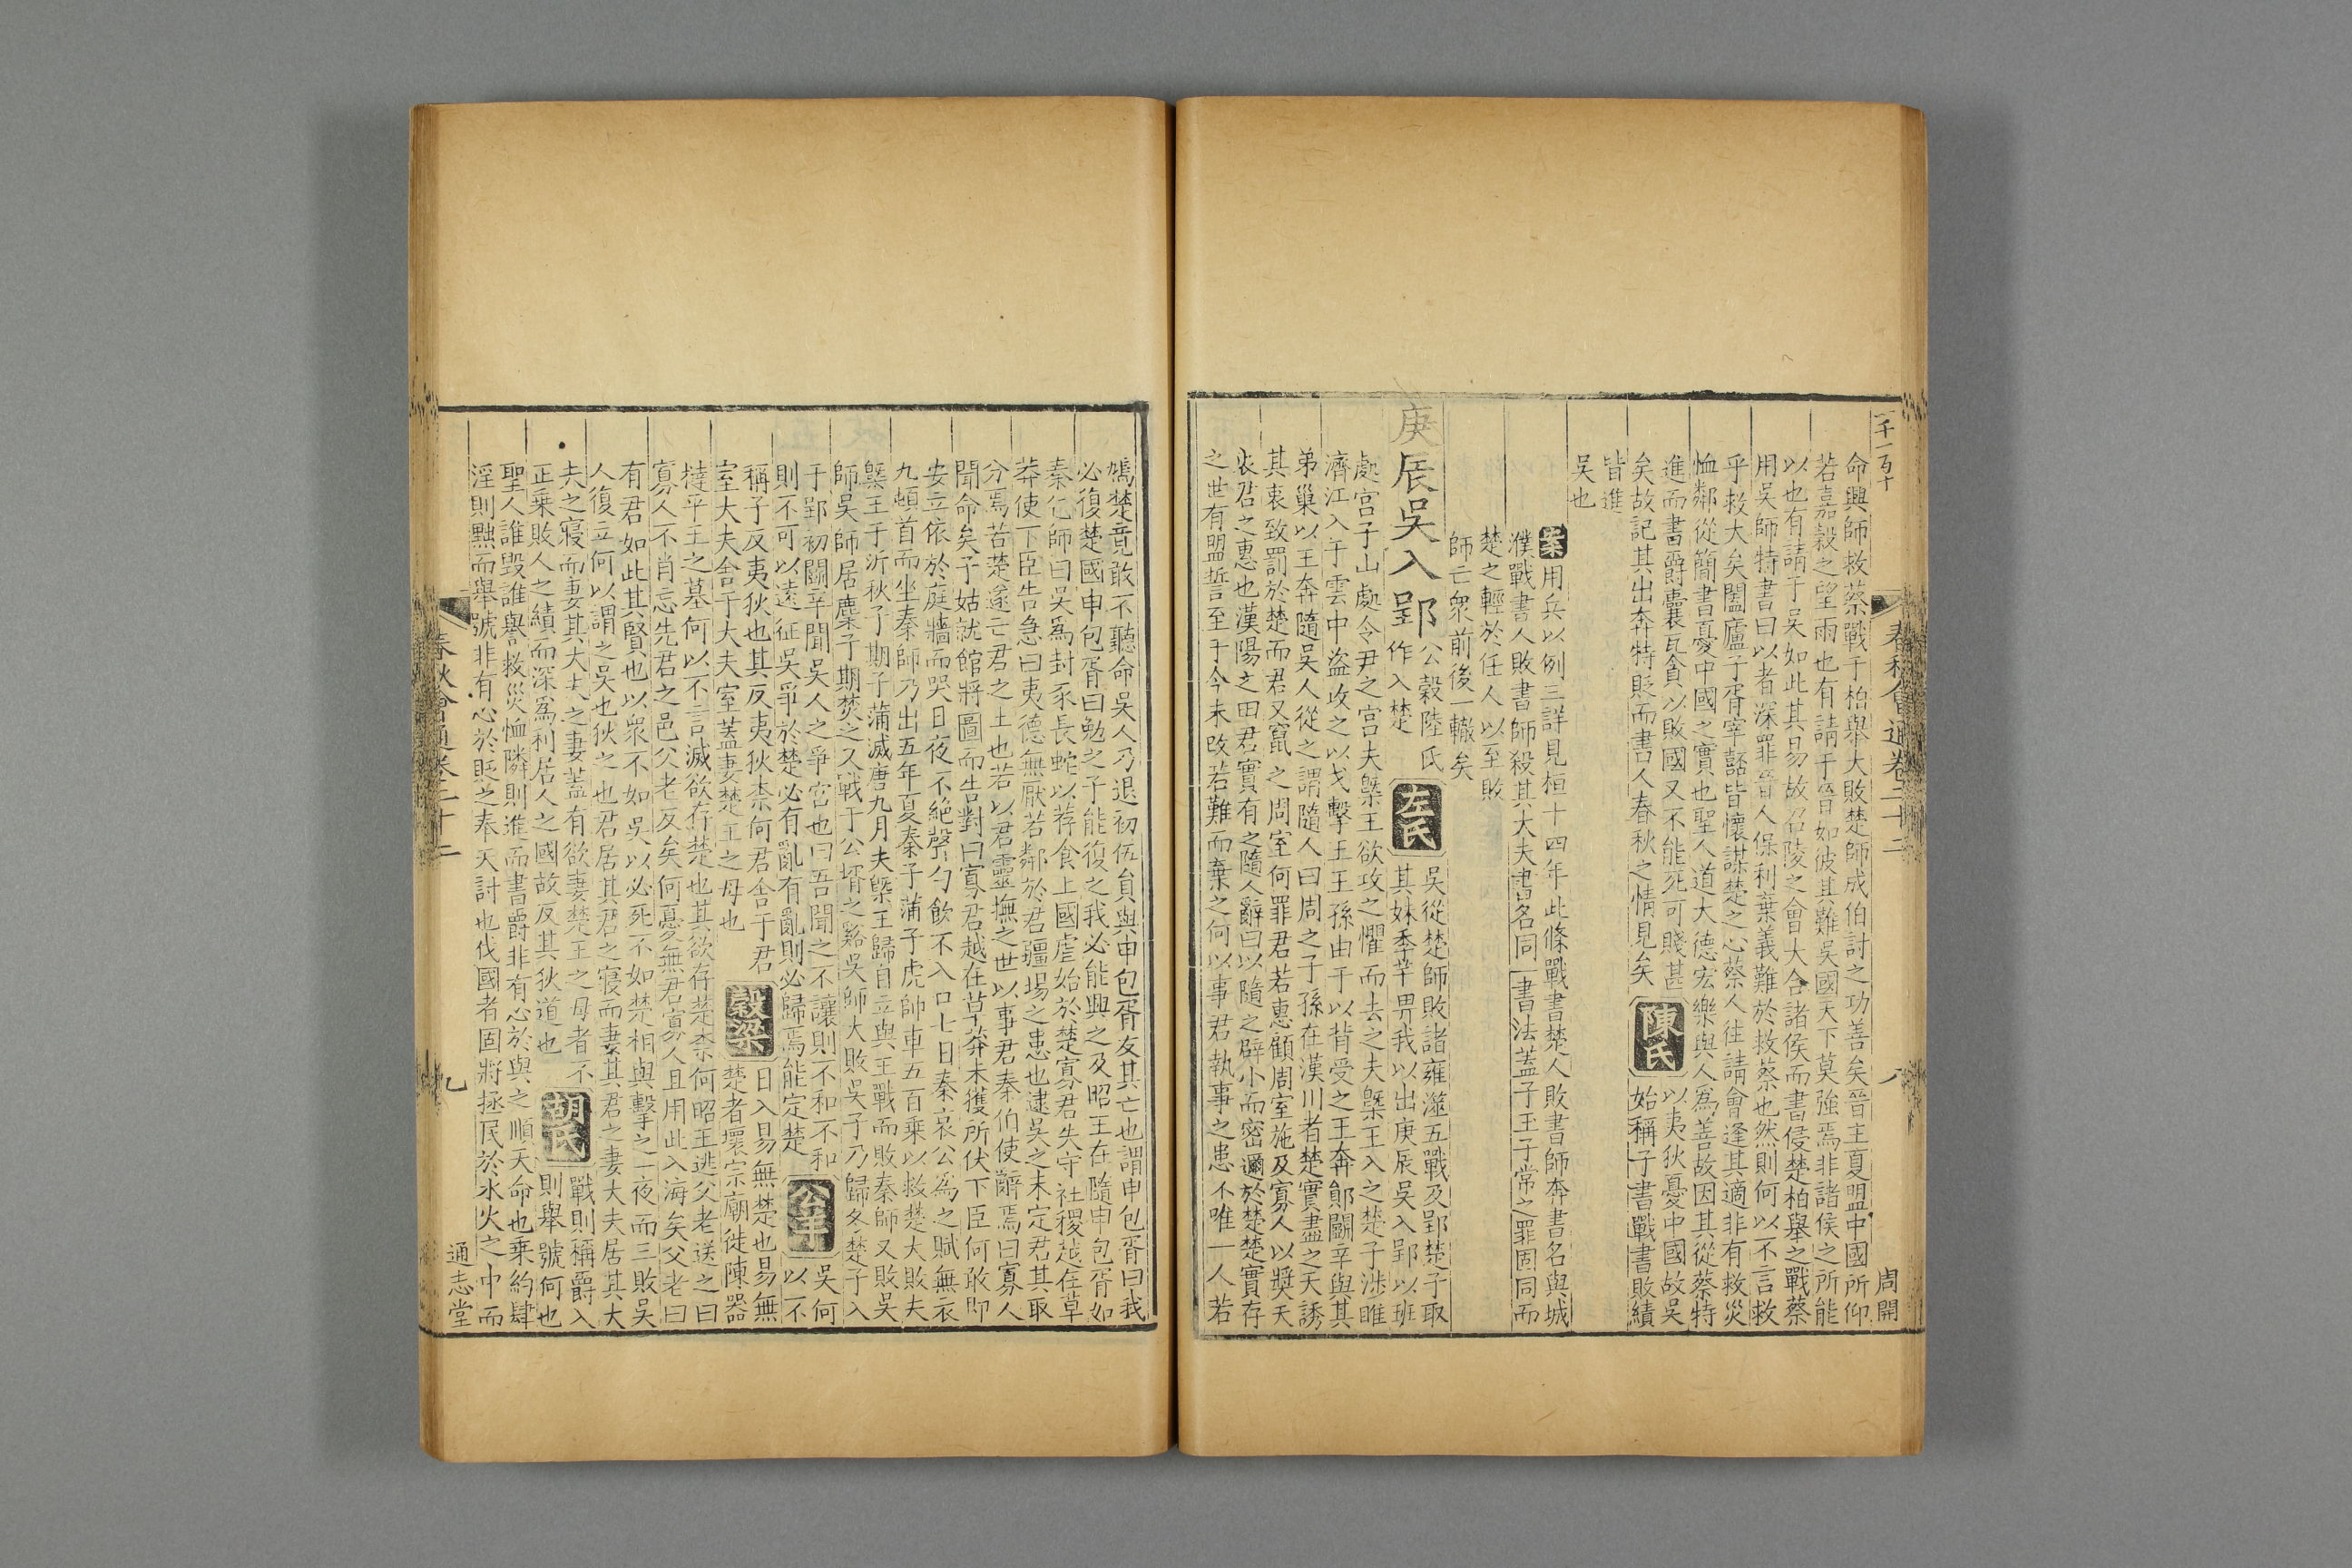 春秋會通卷二十二
八
周開
命興師救蔡戰于柏舉大敗楚師成伯討之功善矣晉主夏盟中國所仰
若嘉穀之望雨也有請于晉如彼其難吳國天下莫強焉非諸侯之所能
以也有請于吳如此其易故召陵之會大合諸侯而書侵楚柏舉之戰蔡
用吳師特書曰以者深罪晉人保利棄義難於救蔡也然則何以不言救
乎救大矣闔廬子胥宰嚭皆懷謀楚之心蔡人往請會逢其適非有救災
恤鄰從簡書憂中國之實也聖人道大德宏樂與人為善故因其從蔡特
進而書爵囊瓦貪以敗國又不能死可賤甚
矣故記其出奔特貶而書人春秋之情見矣
陳氏
以夷狄憂中國故吳
始稱子書戰書敗績
皆進
吳也
案
用兵以例三詳見桓十四年此條戰書楚人敗書師奔書名與城
濮戰書人敗書師殺其大夫書名同一書法蓋子玉子常之罪固同而
楚之輕於任人以至敗
師亡衆前後一轍矣
庚辰吳入郢
公穀陸氏
作入楚
左氏
吳從楚師敗諸雍澨五戰及郢楚子取
其妹季芉畀我以出庚辰吳入郢以班
處宮子山處令尹之宮夫槩王欲攻之懼而去之夫槩王入之楚子涉睢
濟江入于雲中盜攻之以戈擊王王孫由于以背受之王奔鄖鬭辛與其
弟巢以王奔隨吳人從之謂隨人曰周之子孫在漢川者楚實盡之天誘
其衷致罰於楚而君又竄之周室何罪君若惠顧周室施及寡人以奬天
衷君之惠也漢陽之田君實有之隨人辭曰以隨之辟小而密邇於楚楚實存
之世有盟誓至于今未改若難而棄之何以事君執事之患不唯一人若
鳩楚竟敢不聽命吳人乃退初伍員與申包胥友其亡也謂申包胥曰我
必復楚國申包胥曰勉之子能復之我必能興之及昭王在隨申包胥如
秦乞師曰吳為封豕長蛇以荐食上國虐始於楚寡君失守社稷越在草
莽使下臣告急曰夷德無厭若鄰於君疆埸之患也逮吳之未定君其取
分焉若楚遂亡君之土也若以君靈撫之世以事君秦伯使辭焉曰寡人
聞命矣子姑就館將圖而告對曰寡君越在草莽未獲所伏下臣何敢即
安立依於庭牆而哭日夜不絕聲勺飲不入口七日秦哀公為之賦無衣
九頓首而坐秦師乃出五年夏秦子蒲子虎帥車五百乘以救楚大敗夫
槩王于沂秋子期子蒲滅唐九月夫槩王歸自立與王戰而敗秦師又敗吳
師吳師居麇子期焚之又戰于公壻之谿吳師大敗吳子乃歸冬楚子入
于郢初鬭辛聞吳人之爭宮也曰吾聞之不讓則不和不和
則不可以遠征吳爭於楚必有亂有亂則必歸焉能定楚
公羊
吳何
以不
稱子反夷狄也其反夷狄柰何君舍于君
室大夫舍于大夫室蓋妻楚王之母也
穀梁
日入易無楚也易無
楚者壞宗廟徙陳器
撻平王之墓何以不言滅欲存楚也其欲存楚柰何昭王逃父老送之曰
寡人不肖忘先君之邑父老反矣何憂無君寡人且用此入海矣父老曰
有君如此其賢也以衆不如吳以必死不如楚相與擊之一夜而三敗吳
人復立何以謂之吳也狄之也君居其君之寢而妻其君之妻大夫居其大
夫之寢而妻其大夫之妻蓋有欲妻楚王之母者不
正乗敗人之績而深為利居人之國故反其狄道也
胡氏
戰則稱爵入
則舉號何也
聖人誰毁誰譽救災恤隣則進而書爵非有心於與之順天命也乗約肆
淫則黜而舉號非有心於貶之奉天討也伐國者固將拯民於水火之中而
春秋會通卷二十二
九
通志堂